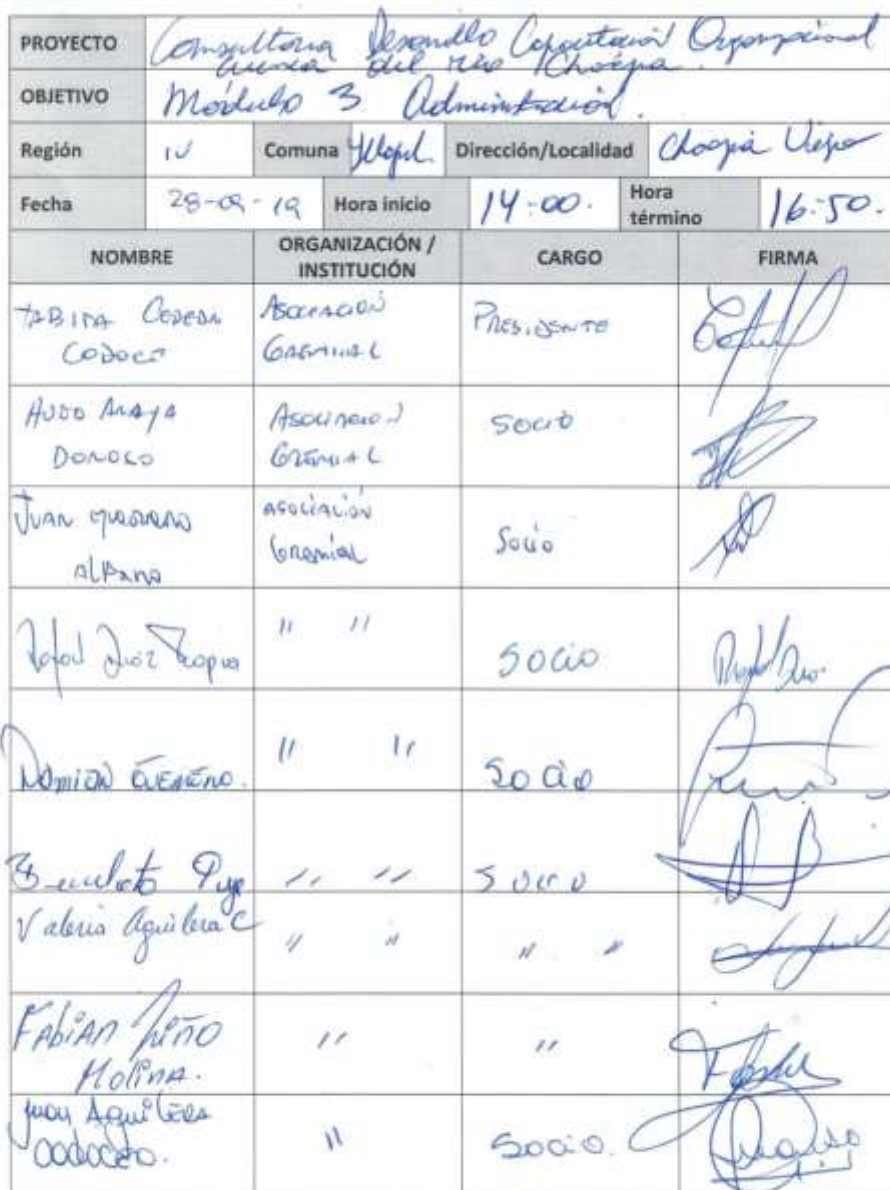 PROYECTO Consultoria Desarrollo Capacitación Organizacional
cuenca del río Choapa.
OBJETIVO Módulo 3 Administración.
Región IV Comuna Illapel Dirección/Localidad Choapa Viejo
Fecha 28-09-19 Hora inicio 14-00. Hora término 16-50.
NOMBRE ORGANIZACIÓN / INSTITUCIÓN CARGO FIRMA
TABITA CEPEDA ASOCIACION PRESIDENTE
GREMIAL
HUGO ARAYA ASOCIACION SOCIO
DONOSO GREMIAL
JUAN ASOCIACIÓN Socio
Gremial
Rafael Díaz Tapia " " SOCIO
Damian " " Socio
" " SOCIO
Valeria Aguilera C " " " "
FABIAN NIÑO " "
MOLINA.
Juan Aguilera " SOCIO.